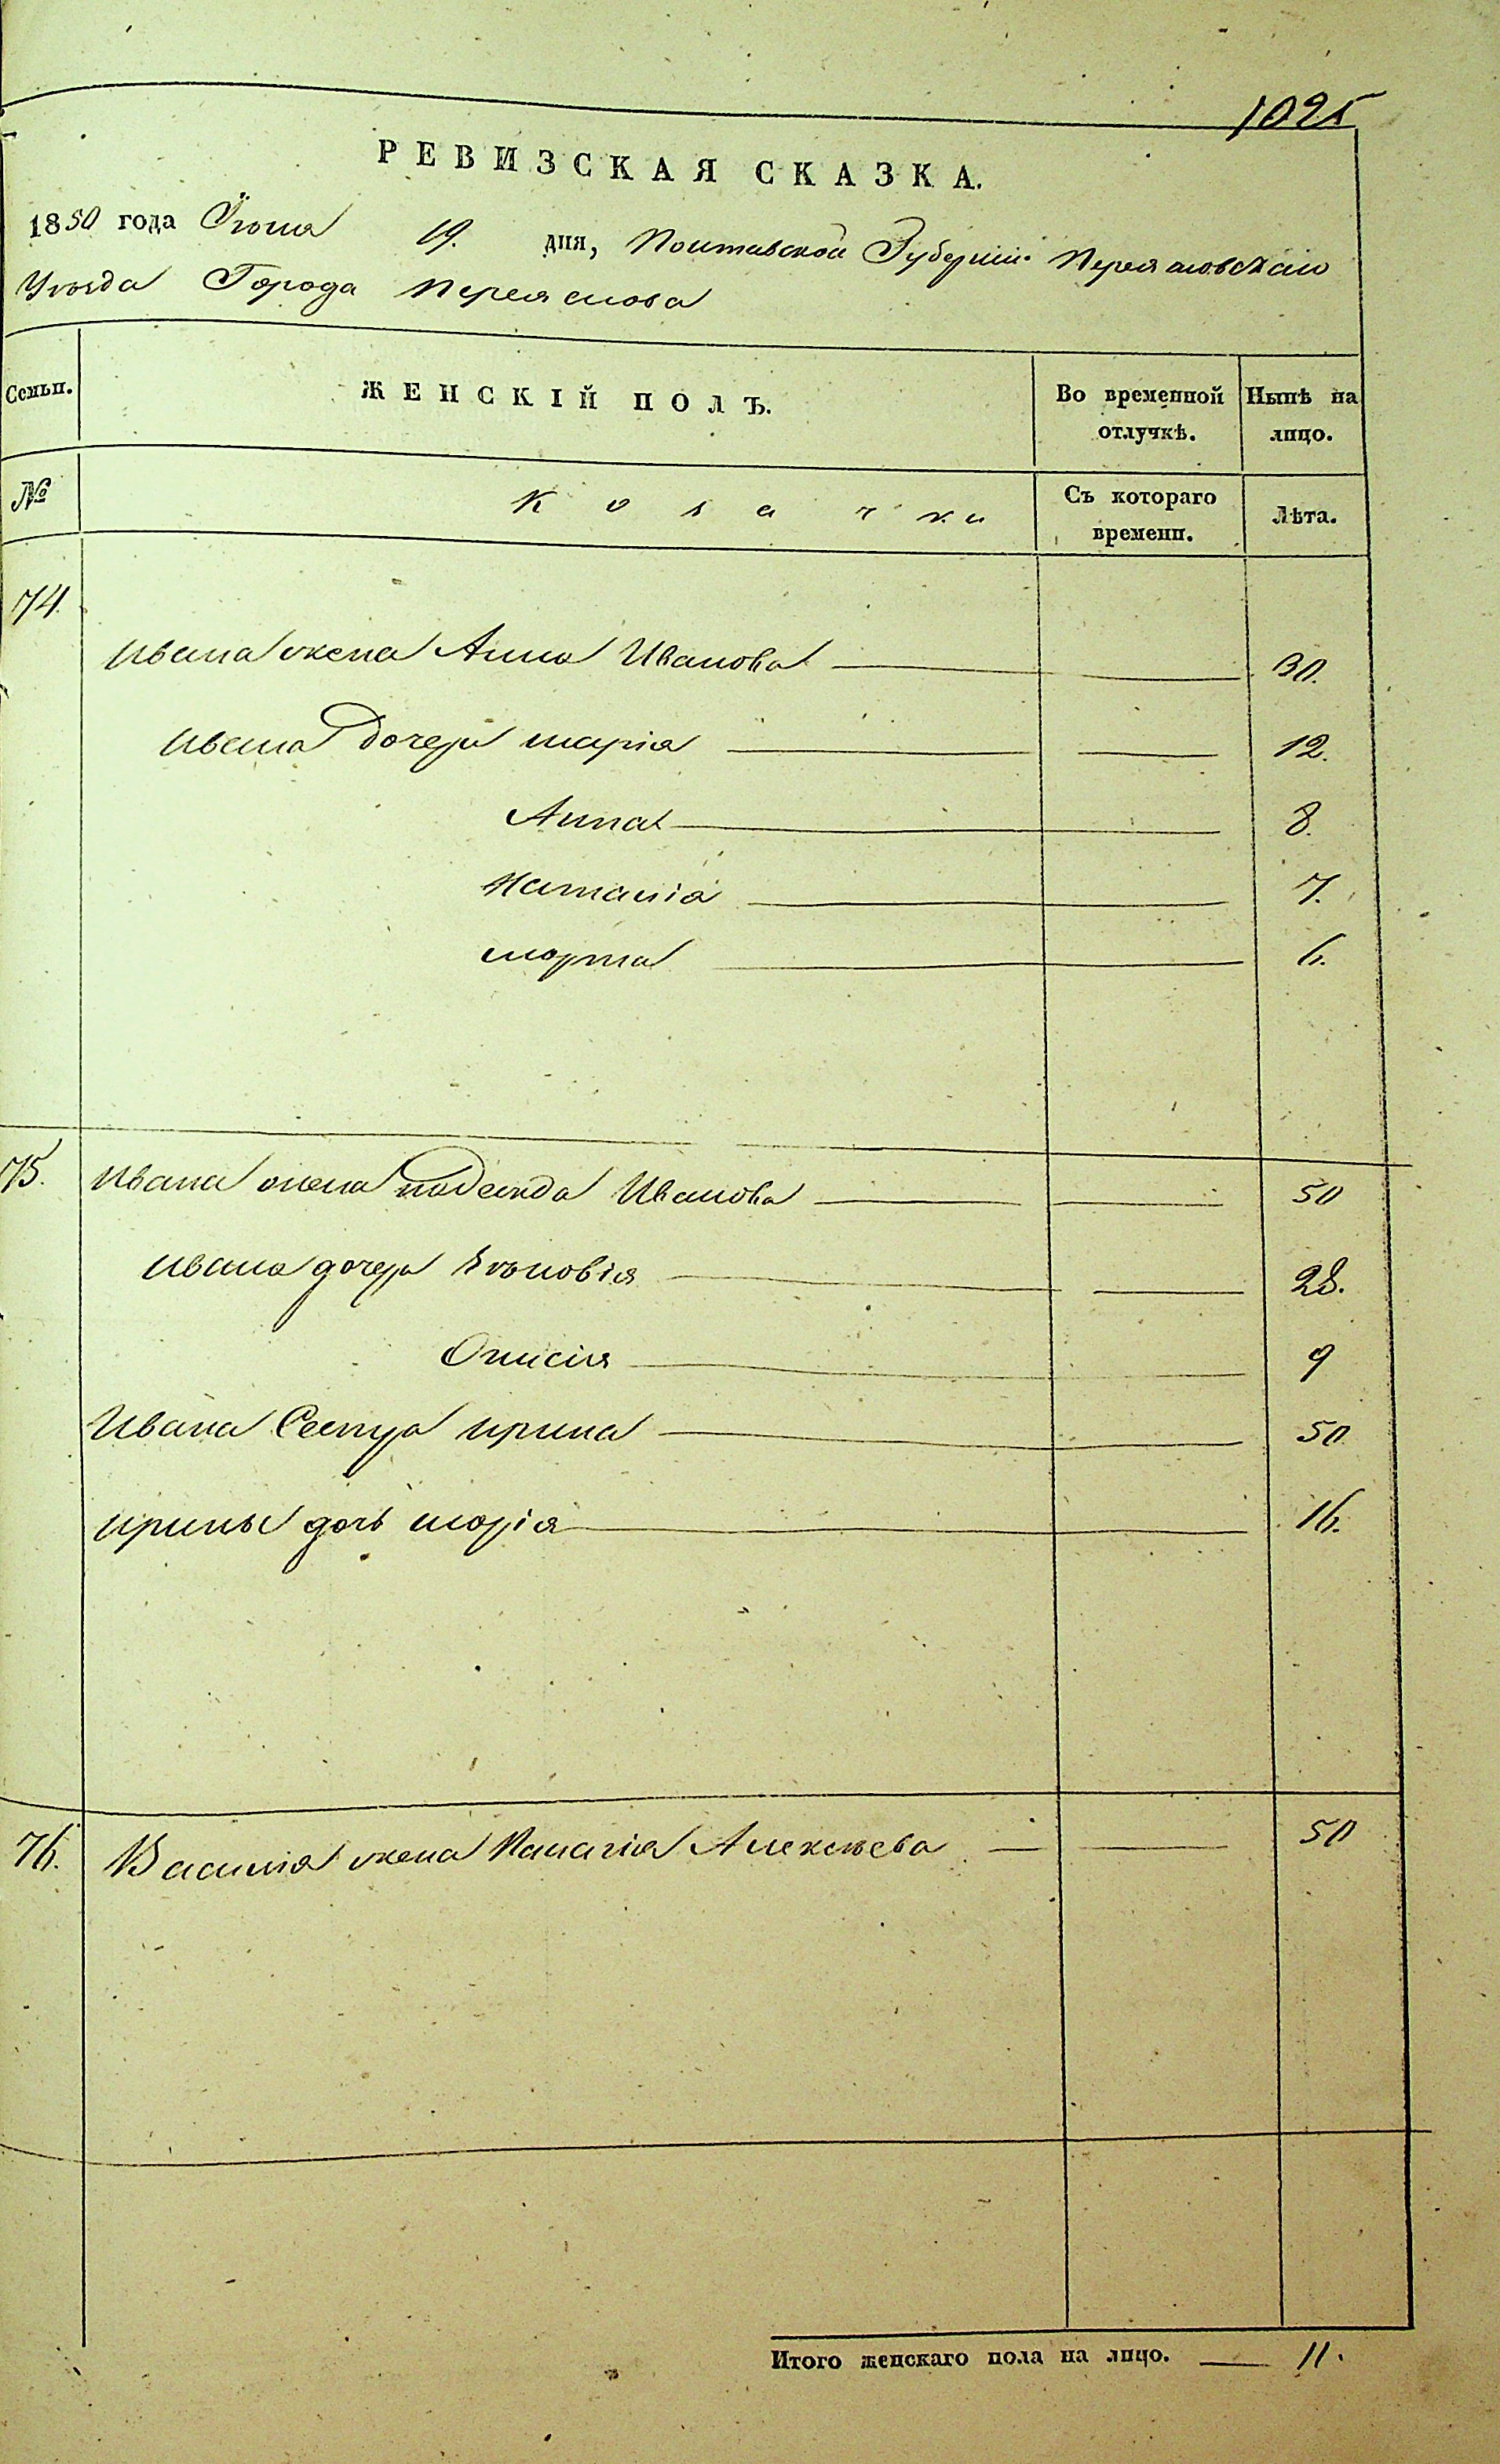 1025
РЕВИЗСКАЯ СКАЗКА.
1850 года Іюня 19. дня, Полтавской Губерніи Переясловскаго
Уѣзда Города Переяслова
Семьи. ЖЕНСКІЙ ПОЛЪ. Во временной отлучкѣ. Нынѣ на лицо.
№ Козачки Съ котораго времени. Лѣта.
74.
Ивана жена Анна Иванова 30.
Ивана дочери Марія 12.
Анна 8.
Наталія 7.
Марта 6.
75. Ивана жена Надежда Иванова 50
Ивана дочери Зѣновія 28.
Онисія 9
Ивана Сестра Ирина 50
Ирины дочь Марія 16.
76. Василія жена Палагія Алексѣева 50
Итого женскаго пола на лицо. 11.